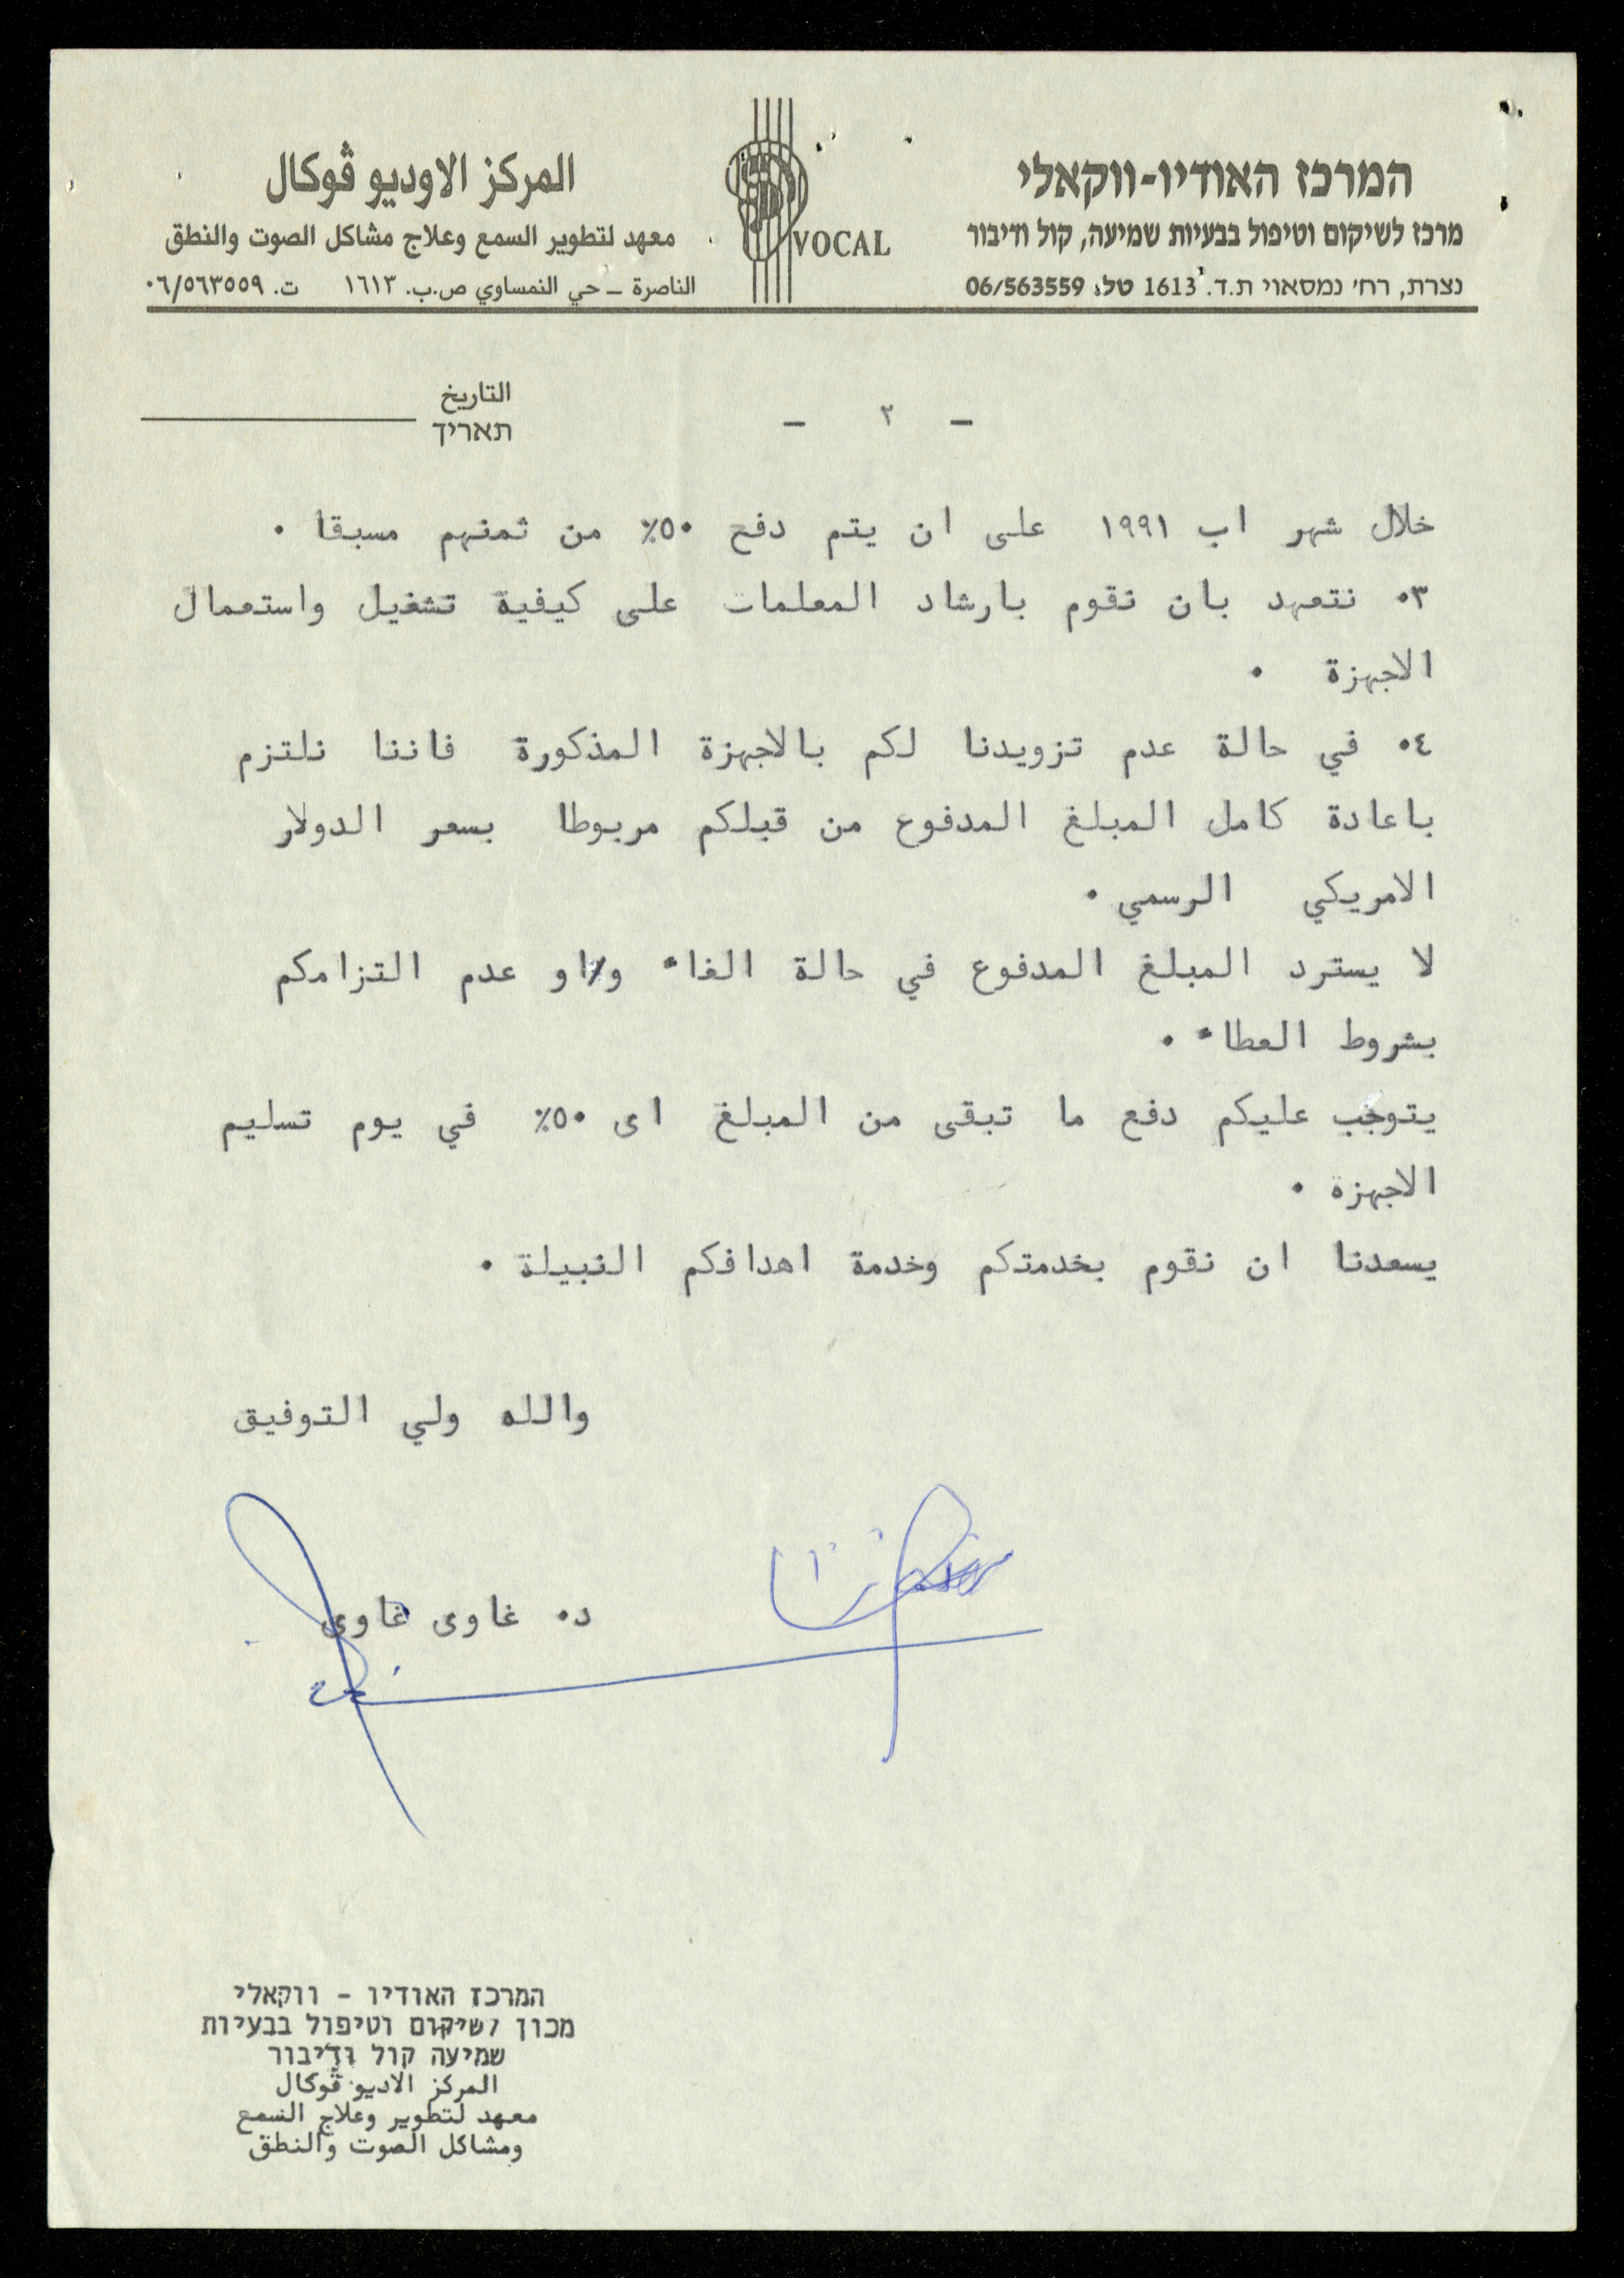 המרכז האודיו-ווקאלי
מרכז לשיקום וטיפול בבעיות שמיעה, קול ודיבור
נצרת, רח׳ נמסאוי ת.ד. 1613 טל: 06/563559
VOCAL
المركز الاوديو ڤوكال
معهد لتطوير السمع وعلاج مشاكل الصوت والنطق
الناصرة – حي النمساوي ص.ب. ١٦١٣ ت. ٠٦/٥٦٣٥٥٩
التاريخ
תאריך
– ٢ –
خلال شهر اب ١٩٩١ على ان يتم دفع ٥٠٪ من ثمنهم مسبقا .
٠٣ نتعهد بان نقوم بارشاد المعلمات على كيفية تشغيل واستعمال
الاجهزة .
٠٤ في حالة عدم تزويدنا لكم بالاجهزة المذكورة فاننا نلتزم
باعادة كامل المبلغ المدفوع من قبلكم مربوطا بسعر الدولار
الامريكي الرسمي .
لا يسترد المبلغ المدفوع في حالة الغاء و/او عدم التزامكم
بشروط العطاء .
يتوجب عليكم دفع ما تبقى من المبلغ اى ٥٠٪ في يوم تسليم
الاجهزة .
يسعدنا ان نقوم بخدمتكم وخدمة اهدافكم النبيلة .
والله ولي التوفيق
د. غاوى غاوى
המרכז האודיו - ווקאלי
מכון לשיקום וטיפול בבעיות
שמיעה קול ודיבור
المركز الاديو ڤوكال
معهد لتطوير وعلاج السمع
ومشاكل الصوت والنطق